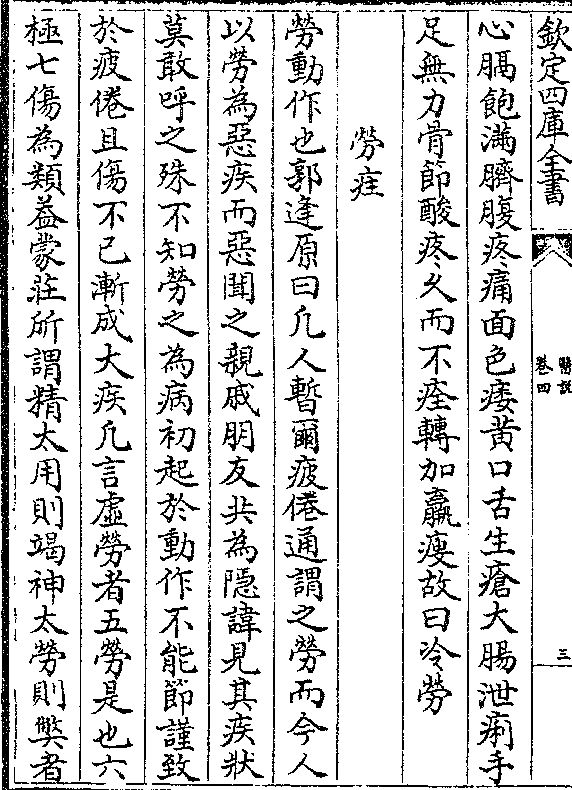 欽定四庫全書
醫說
卷四
三
心膈飽滿臍腹疼痛面色痿黄口舌生瘡大腸泄痢手
足無力骨節酸疼久而不痊轉加羸瘦故曰冷勞
勞疰
勞動作也郭逢原曰凡人暫爾疲倦通謂之勞而今人
以勞為惡疾而惡聞之親戚朋友共為隠諱見其疾狀
莫敢呼之殊不知勞之為病初起於動作不能節謹致
於疲倦且傷不已漸成大疾凡言虛勞者五勞是也六
極七傷為類葢蒙莊所謂精太用則竭神太勞則弊者